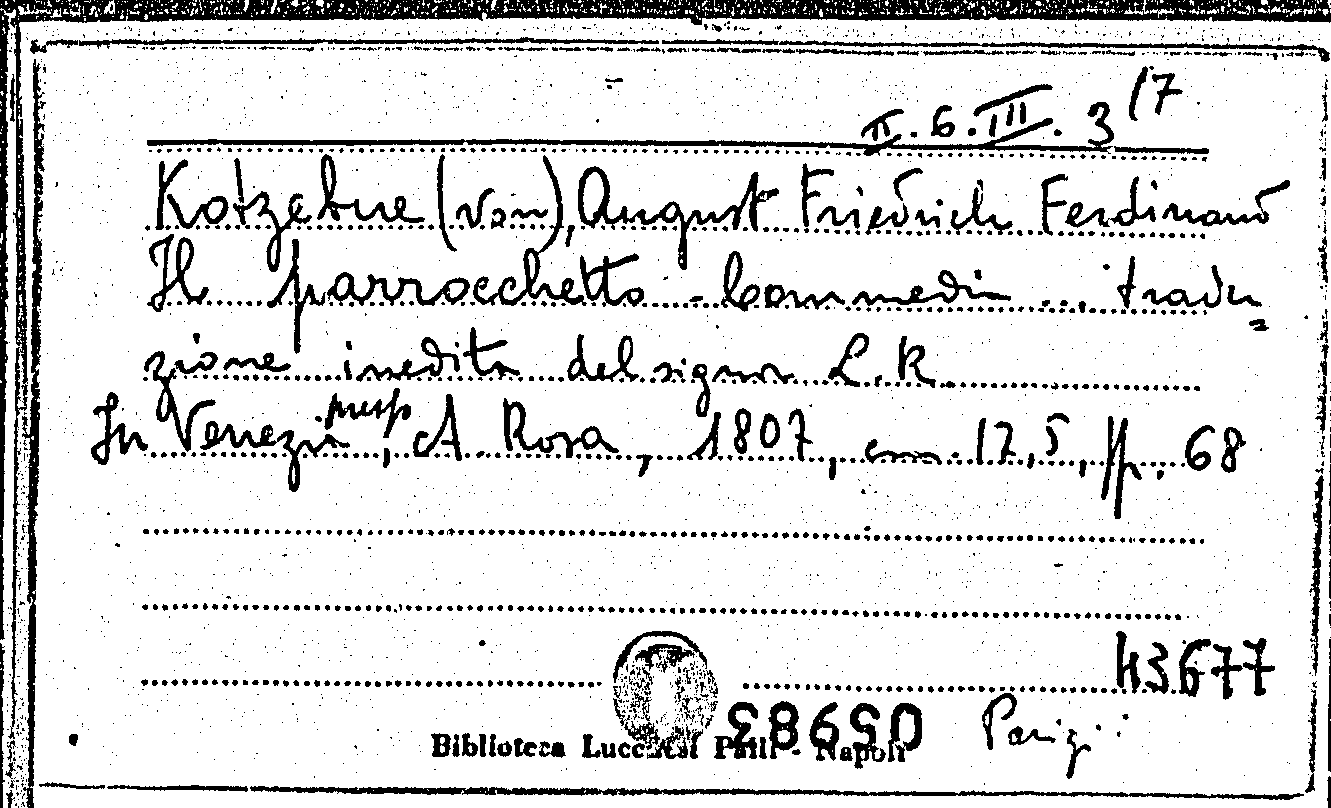 II.6.III.3 17
Kotzebue (von), August Friedrich Ferdinand
Il parrocchetto - Commedia ... tradu=
zione inedita del signor L.R.
In Venezia, presso A. Rosa, 1807, cm. 17,5, pp. 68
43677
Parigi
Biblioteca Lucchesi Palli - Napoli